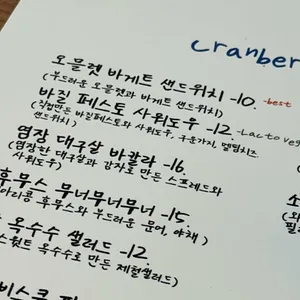 cranber
오믈렛 바게트 샌드위치 -10. -best
(부드러운 오믈렛과 바게트 샌드위치)
바질 페스토 사워도우 -12. -Lacto veg
(직접만든 바질페스토와 사워도우, 구운가지, 멜팅치즈
샌드위치)
염장 대구살 바칼라 -16.
(염장한 대구살과 감자로 만든 스프레드와
사워도우)
후무스 무너무너무너 -15.
아리콩 후무스와 부드러운 문어, 야채)
옥수수 샐러드 -12.
스윗트 옥수수로 만든 제철샐러드)